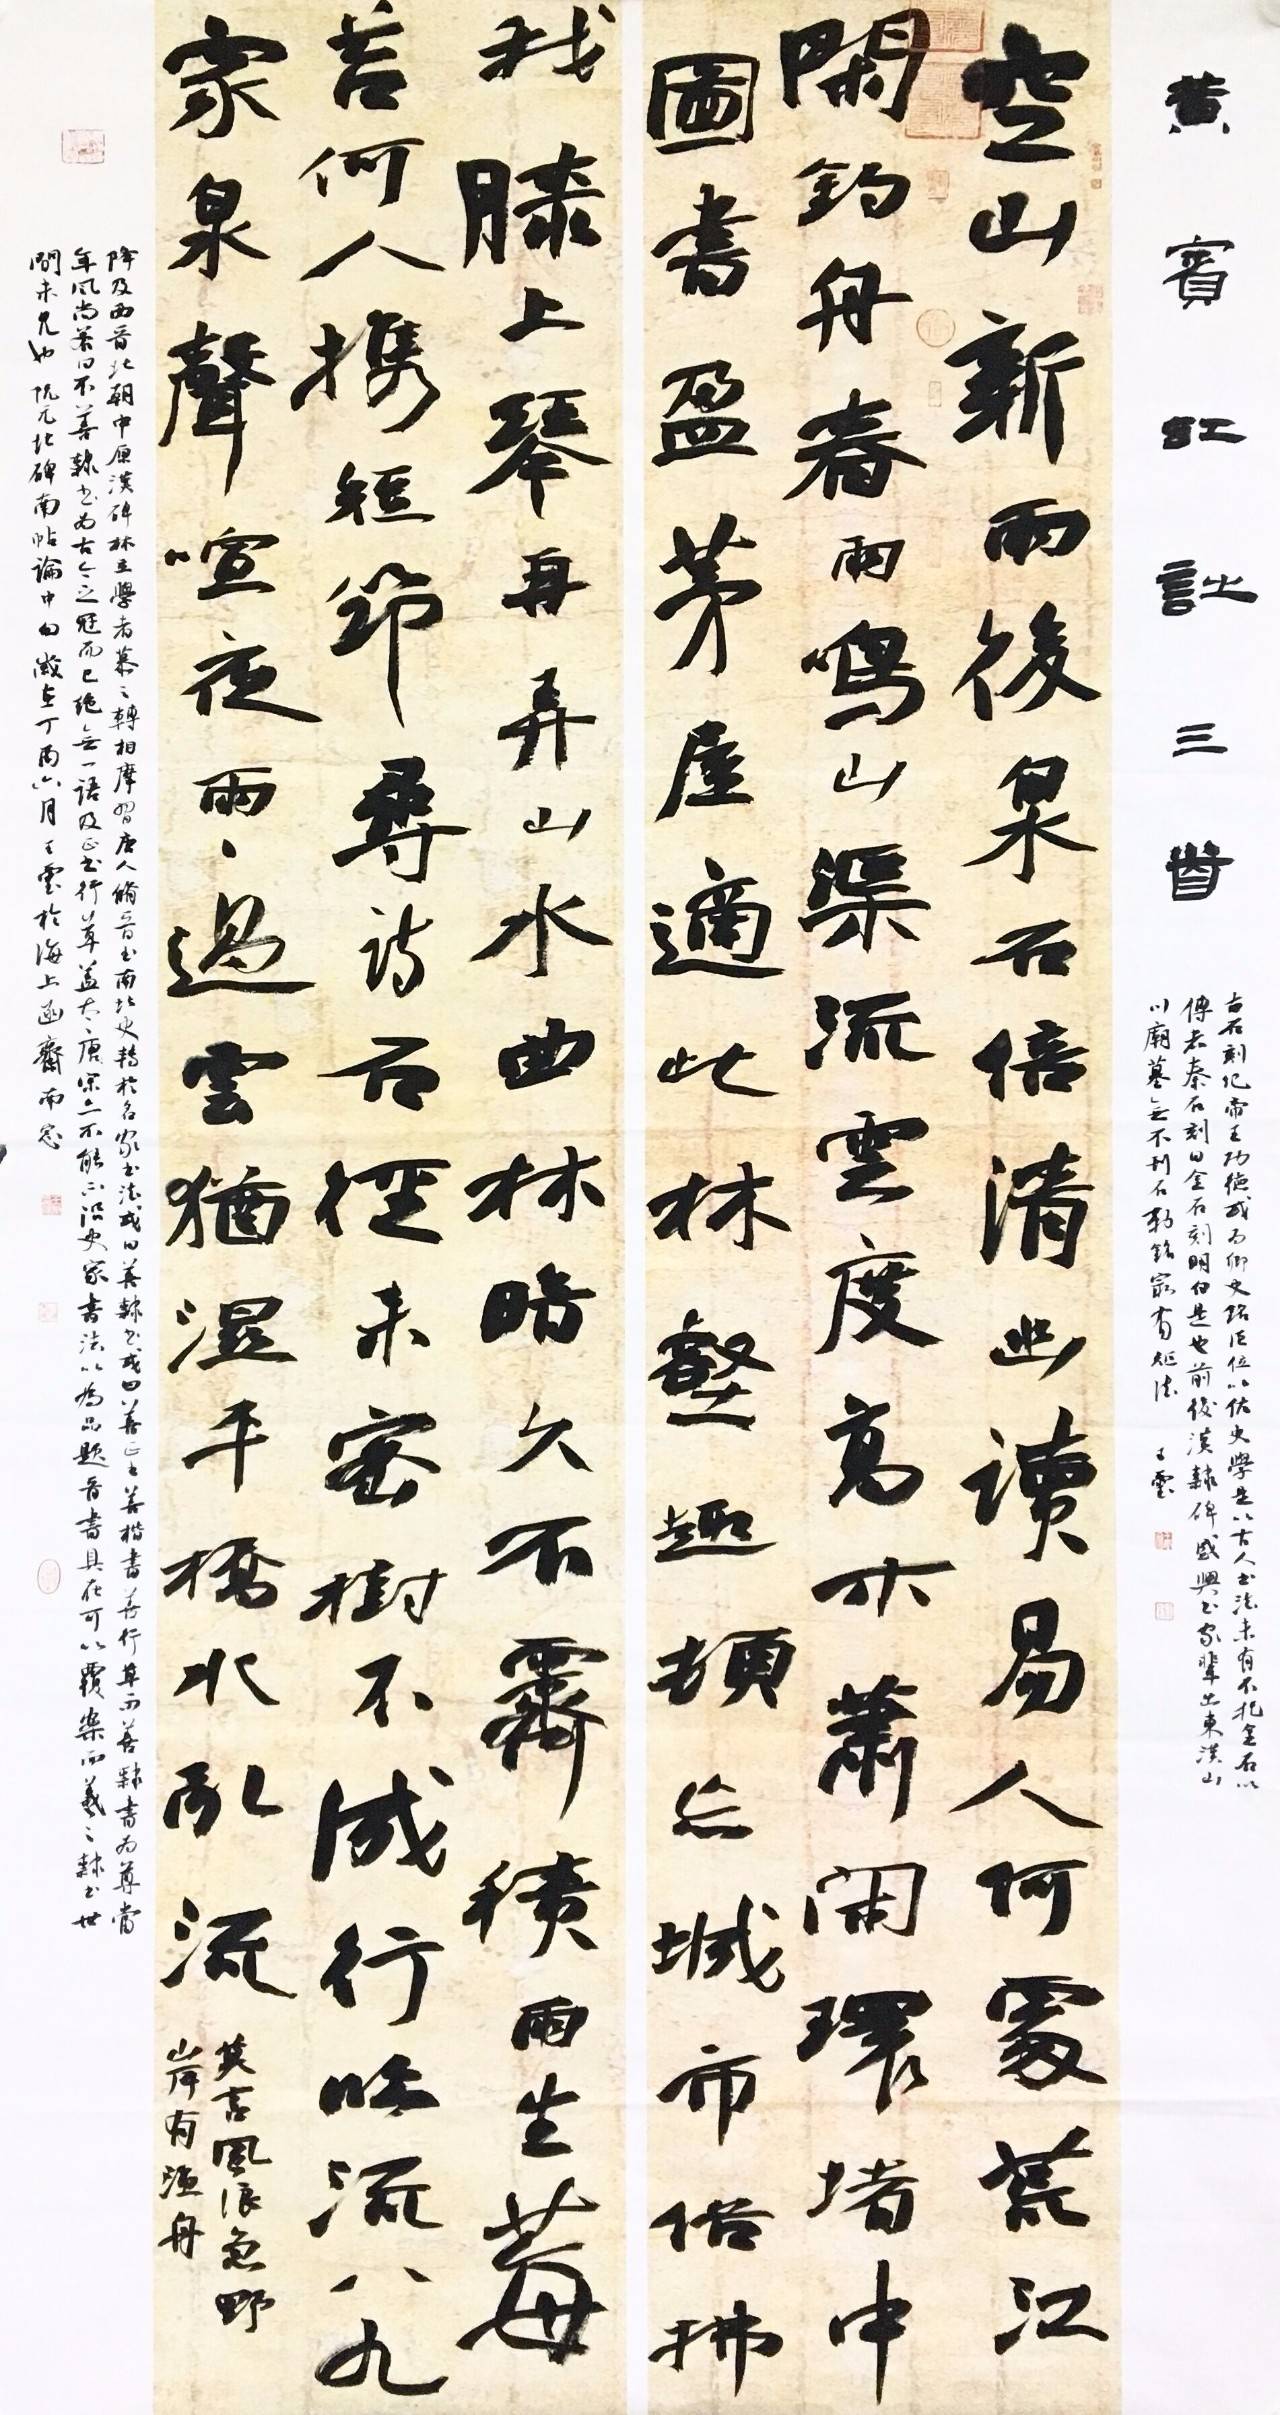 黄賓虹詩三首
古石刻纪帝王功德或为卿史路臣位以佐史學是以古人书法未有不托金石以
傳者秦石刻曰金石刻明白是也前後漢隸碑盛興书家輩出東漢山
川廟墓無不刊石勒銘最有矩法 王雲
空山新雨後泉石倍清幽讀易人何處荒江
閑釣舟春雨鳴山渠流雲度高木蕭閑環堵中
圖書盈茅屋適此林壑趣頓忘城市俗拂
我膝上琴再弄山水曲林暗久不霽積雨生莓
苔何人攜短節尋詩石徑来密樹不成行吟流八九
家泉聲喧夜雨雨過雲猶濕平橋水亂流
莫言風浪急野
岸有漁舟
降及西晋北朝中原漢碑林立學者慕之轉相摩習唐人脩晋书南北史转於名家书法或曰善隸书或曰善正书善楷書善行草而善隸書为尊當
年風尚若曰不善隸书为古今之冠而已绝無一語及正书行草蓋太唐宗亦不能不沿史家書法以為品题晋書具在可以覆案而羲之隸书世
間未見也阮元北碑南帖論中句歲在丁酉六月王雲於海上函齋南窓